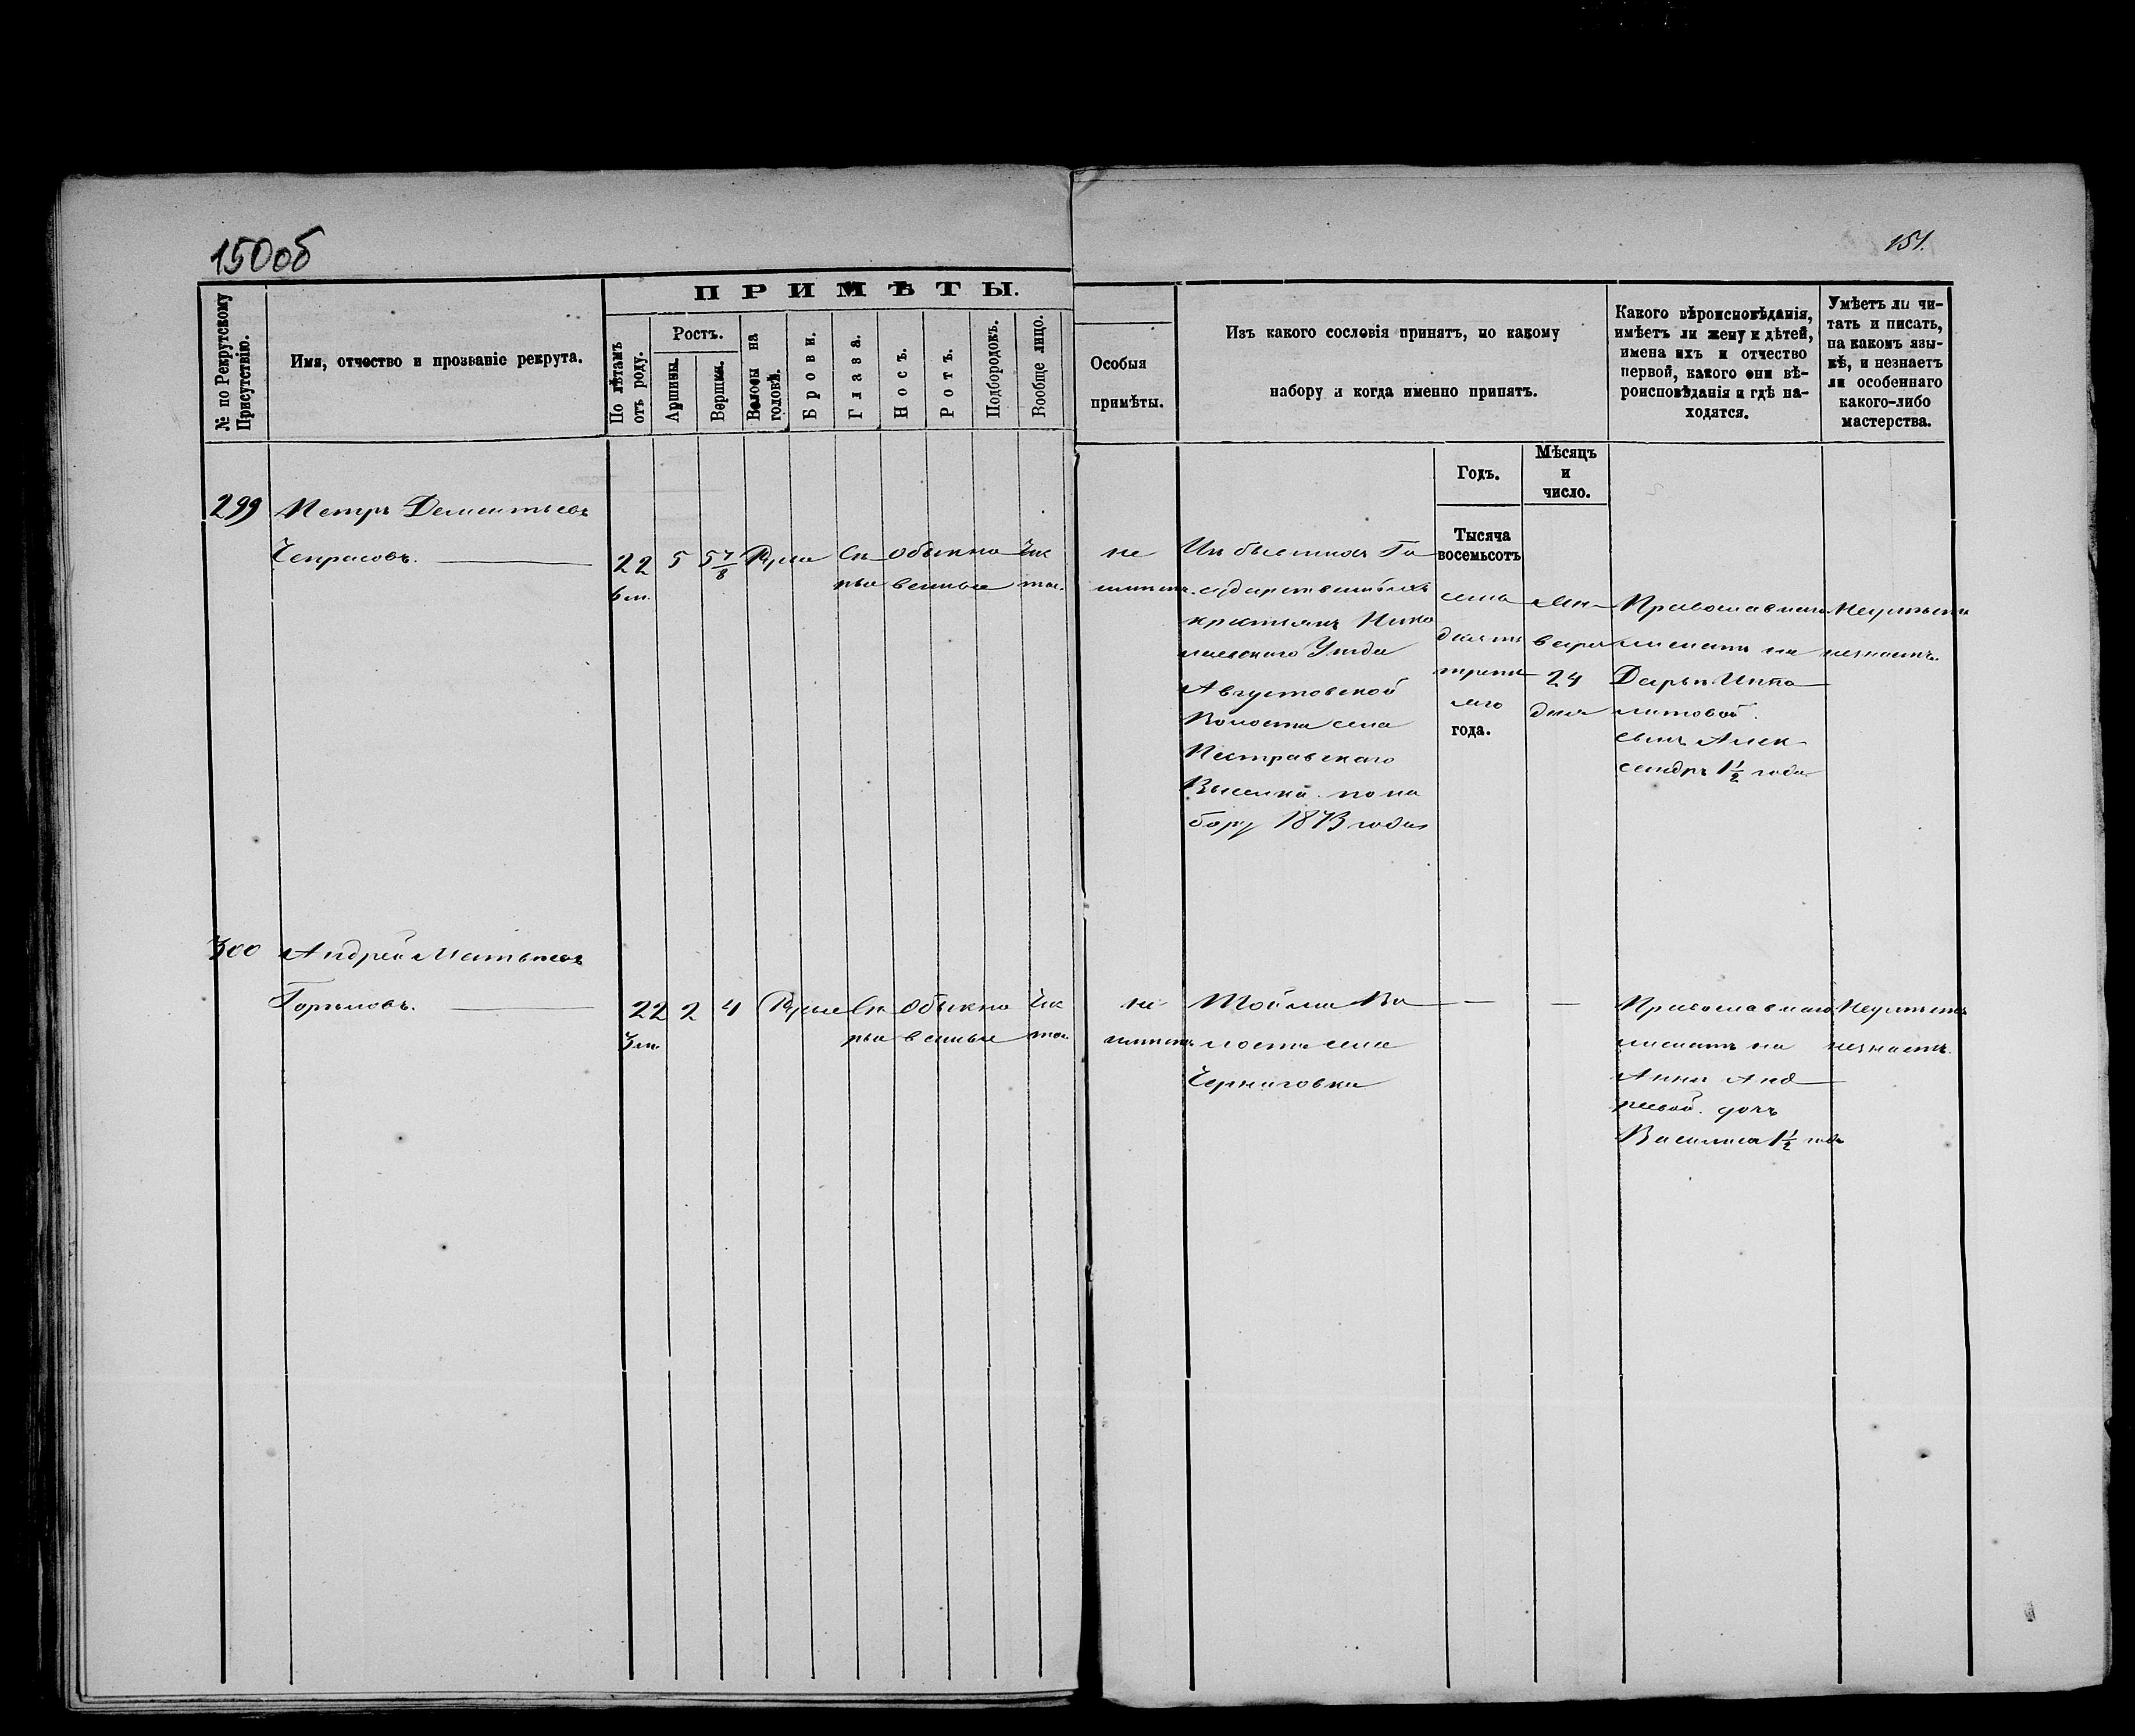 150об
151.
№ по Рекрутскому Присутствію.
Имя, отчество и прозваніе рекрута.
ПРИМѢТЫ.
По лѣтамъ отъ роду.
Ростъ.
Аршины.
Вершки.
Волосы на головѣ.
Брови.
Глаза.
Носъ.
Ротъ.
Подбородокъ.
Вообще лицо.
Особыя
примѣты.
Изъ какого сословія принятъ, по какому
набору и когда именно принятъ.
Какого вѣроисповѣданія,
имѣетъ ли жену и дѣтей,
имена ихъ и отчество
первой, какого они вѣ-
роисповѣданія и гдѣ на-
ходятся.
Умѣетъ ли чи-
тать и писать,
на какомъ язы-
кѣ, и незнаетъ
ли особеннаго
какого-либо
мастерства.
Годъ.
Мѣсяцъ
и
число.
299
Петръ Дементьевъ
Чепрасовъ.
22
6 м.
5
5 7/8
Русы
Сѣ
рые
Обыкно
венные
Чис
тое.
не
имѣетъ.
Изъ бывшихъ Го
сударственныхъ
крестьянъ Нико
лаевскаго Уѣзда
Августовской
Волости села
Пестравскаго
Выселка по на
бору 1873 года
Тысяча
восемьсотъ
семь
десятъ
третья
го
года.
Ян
варя
24
дня
Православнаго
женатъ на
Дарьи Ипо
литовой.
сынъ Алек
сандръ 1½ года
Неумѣетъ
незнаетъ.
300
Андрей Матвѣевъ
22
3 м.
2
4
Русые
Сѣ
рые
Обыкно
венные
Чис
тое.
не
имѣетъ.
Тойже Во
лости села
Черниговки
Православнаго
женатъ на
Анне Анд
реевой. дочь
Василиса 1½ года
Неумѣетъ
незнаетъ.